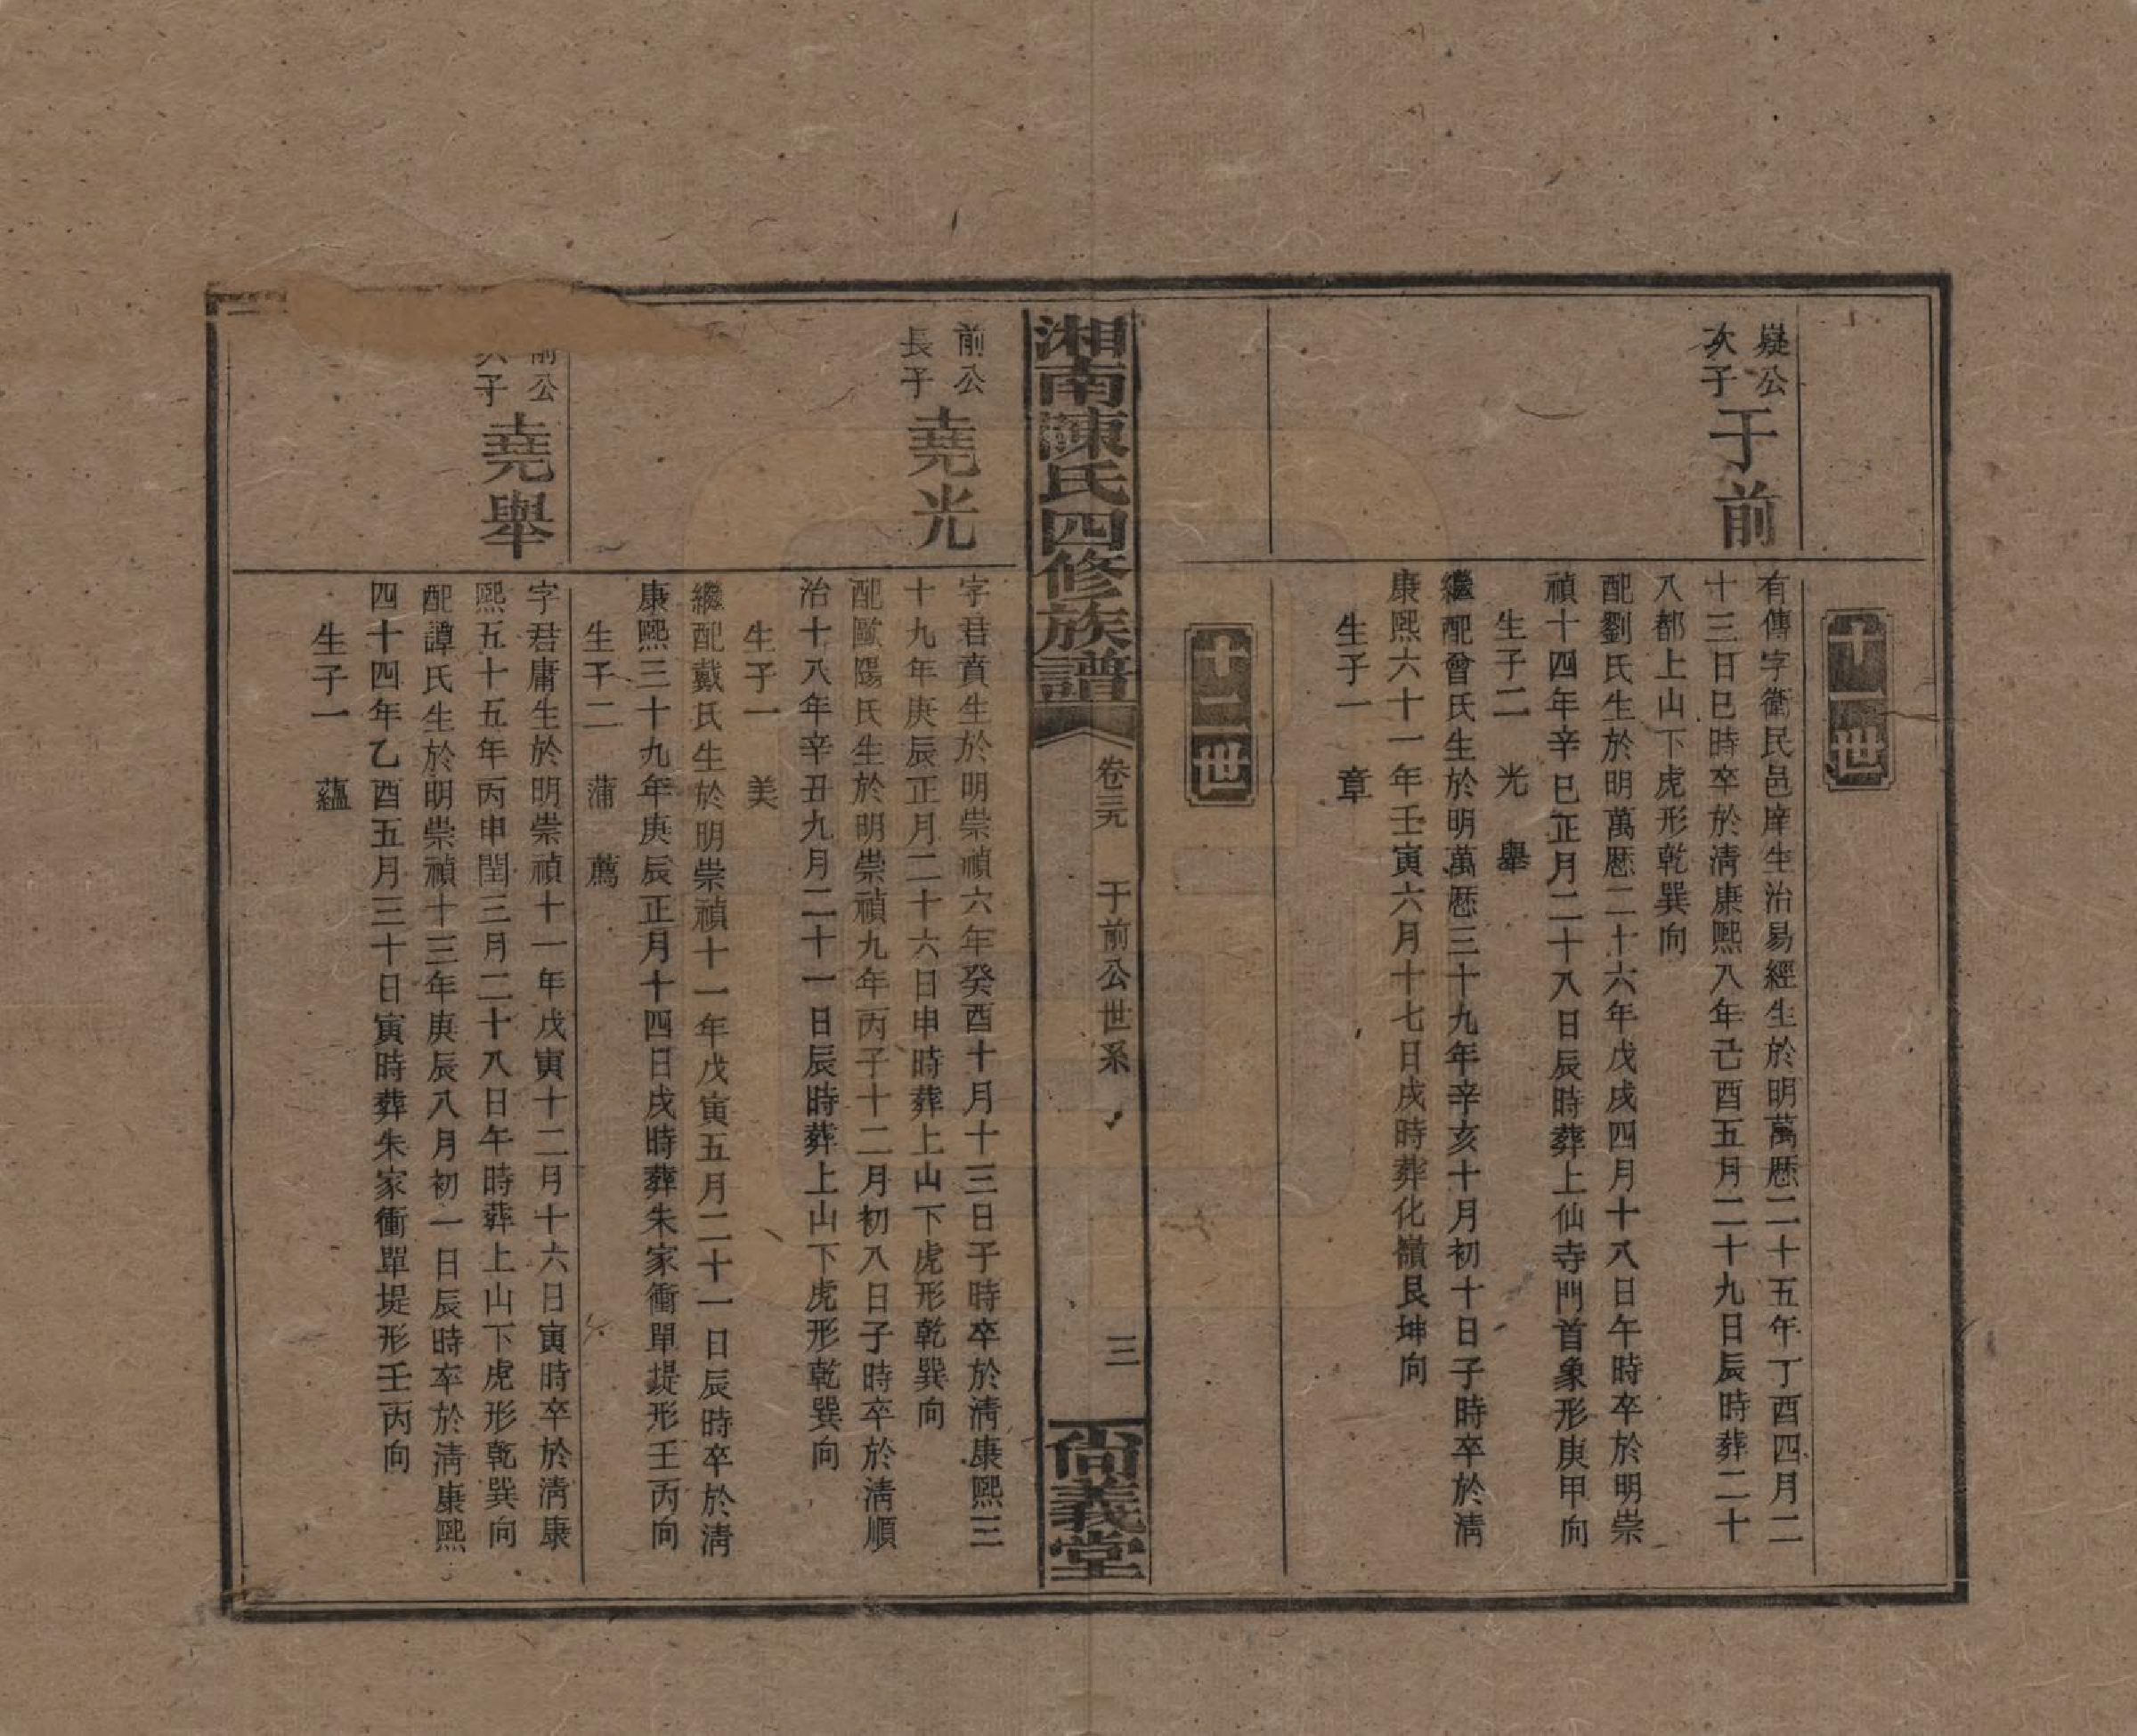 十一世
嶷公
次子
于前
有傳字衛民邑庠生治易經生於明萬厯二十五年丁酉四月二
十三日巳時卒於清康熙八年己酉五月二十九日辰時葬二十
八都上山下虎形乾巽向
配劉氏生於明萬厯二十六年戊戌四月十八日午時卒於明崇
禎十四年辛巳正月二十八日辰時葬上仙寺門首象形庚甲向
生子二 光 舉
繼配曾氏生於明萬厯三十九年辛亥十月初十日子時卒於清
康熙六十一年壬寅六月十七日戌時葬化嶺艮坤向
生子一 章
十二世
湘南陳氏四修族譜
卷三元 于前公世系
三
尚義堂
前公
長子
堯光
字君賁生於明崇禎六年癸酉十月十三日子時卒於清康熙三
十九年庚辰正月二十六日申時葬上山下虎形乾巽向
配歐陽氏生於明崇禎九年丙子十二月初八日子時卒於清順
治十八年辛丑九月二十一日辰時葬上山下虎形乾巽向
生子一 美
繼配戴氏生於明崇禎十一年戊寅五月二十一日辰時卒於清
康熙三十九年庚辰正月十四日戌時葬朱家衝單堤形壬丙向
生子二 蒲 薦
前公
次子
堯舉
字君庸生於明崇禎十一年戊寅十二月十六日寅時卒於清康
熙五十五年丙申閏三月二十八日午時葬上山下虎形乾巽向
配譚氏生於明崇禎十三年庚辰八月初一日辰時卒於清康熙
四十四年乙酉五月三十日寅時葬朱家衝單堤形壬丙向
生子一 蘊